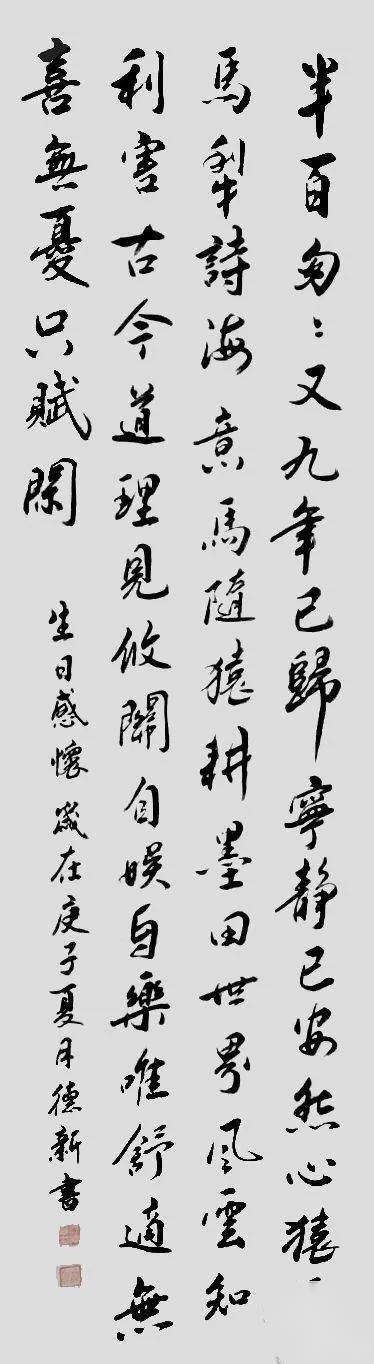 半百匆〻又九年已歸寧靜已安然心猿
馬犁詩海意馬隨猿耕墨田世界風雲知
利害古今道理見攸關自娛自樂唯舒適無
喜無憂只賦閑
生日感懷歲在庚子夏月德新書